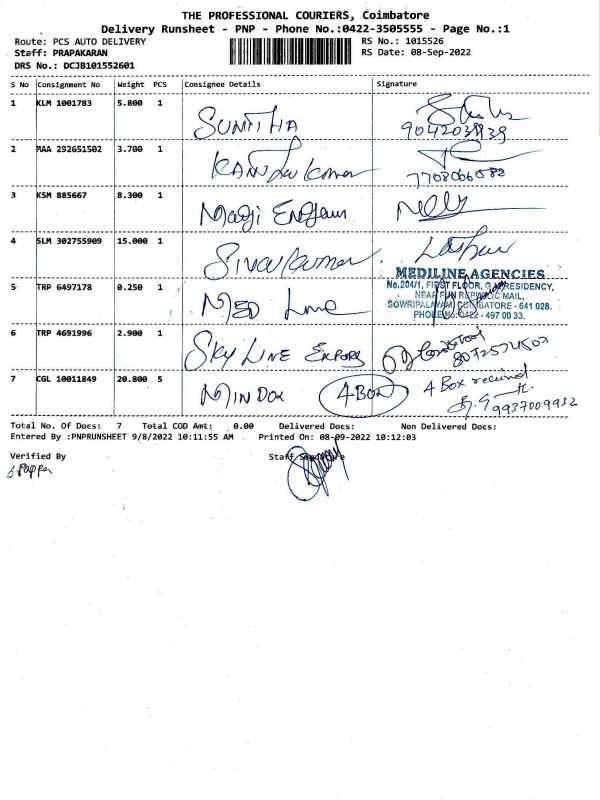 THE PROFESSIONAL COURIERS, Coimbatore
Delivery Runsheet - PNP - Phone No.:0422-3505555 - Page No.:1
Route: PCS AUTO DELIVERY
RS No.: 1015526
Staff: PRAPAKARAN
RS Date: 08-Sep-2022
DRS No.: DCJB101552601
S No Consignment No Weight PCS Consignee Details Signature
1 KLM 1001783 5.800 1 SUNITHA
9042031939
2 MAA 292651502 3.700 1
7708066588
3 KSM 885667 8.300 1
4 SLM 302755909 15.000 1 Sivakumar
MEDILINE AGENCIES
No.204/1, FIRST FLOOR, RESIDENCY,
NEAR FUN REPUBLIC MAIL,
SOWRIPALAYAM, COIMBATORE - 641 028.
PHONE No:0422 - 497 00 33.
5 TRP 6497178 0.250 1 MED Line
6 TRP 4691996 2.900 1 SKY LINE EXPORS
7 CGL 10011849 20.800 5 MINDOX 4 BOX 4 Box received
9937009932
Total No. Of Docs: 7 Total COD Amt: 0.00 Delivered Docs: Non Delivered Docs:
Entered By :PNPRUNSHEET 9/8/2022 10:11:55 AM Printed On: 08-09-2022 10:12:03
Verified By Staff Signature